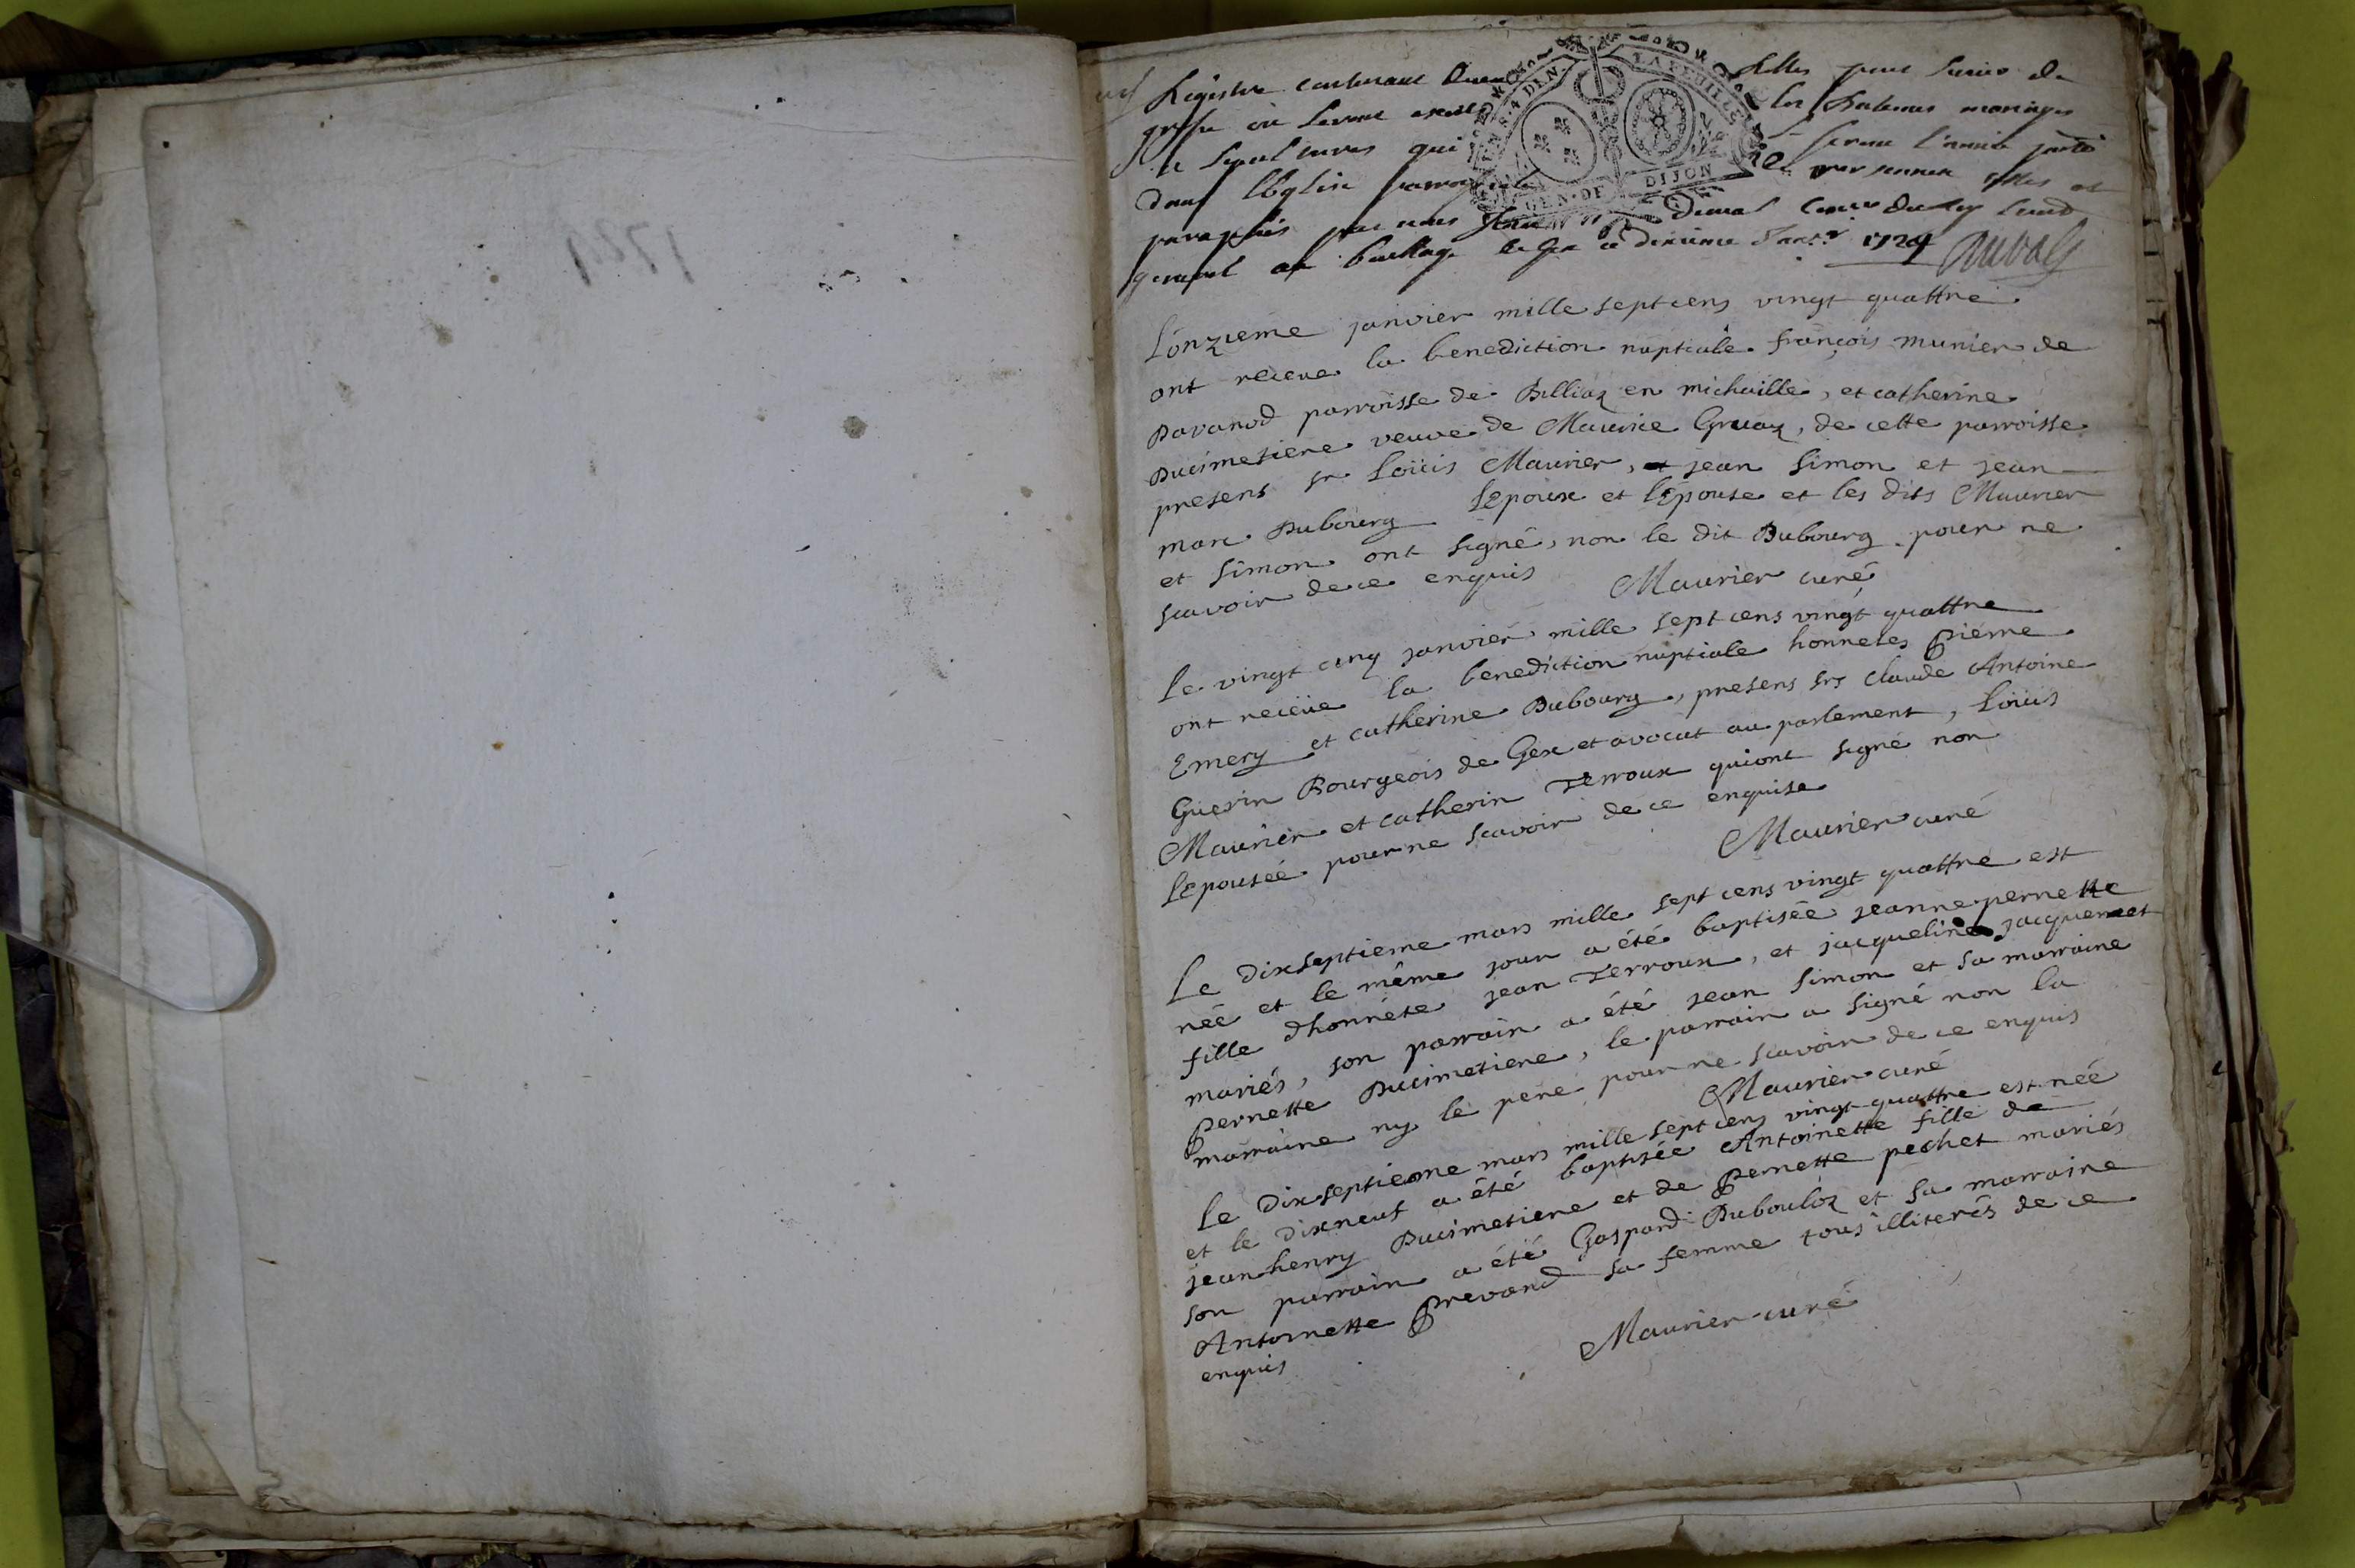 1724
Registre contenant feuilles pour servir de
greffe où seront les Batemes mariages
et sepultures qui se feront l'année
dans l'Eglise de versonnex cottés et
paraphés par nous Duval
general au bailliage de Gex ce dixieme 1724 Duval
L'onzieme janvier mille sept cens vingt quattre
ont receue la benediction nuptiale françois munier de
Davanod parroisse de Billiaz en michaille, et catherine
Ducimetiere veuve de Maurice Gruaz, de cette parroisse
presens sr Loüis Maurier, jean Simon et jean
marc Dubourg L'Epoux et L'Epouse et les dits Maurier
et Simon ont signé, non le dit Dubourg pour ne
scavoir de ce enquis Maurier curé
Le vingt cinq janvier mille sept cens vingt quattre
ont receüe la benediction nuptiale honnetes Pierre
Emery et catherine Dubourg, presens srs claude Antoine
Guerin Bourgeois de Gex et avocat au parlement, Loüis
Maurier et catherin Terroux qui ont signé non
L'Epousée pour ne scavoir de ce enquise
Maurier curé
Le dixseptieme mars mille sept cens vingt quattre est
née et le même jour a été baptisée jeanne pernette
fille d'honnéte jean Terroux, et jacqueline jacquemet
mariés, son parrain a été jean Simon et sa marraine
Pernette Ducimetiere, le parrain a signé non la
marraine ny le pere pour ne scavoir de ce enquis
Maurier curé
Le Dixseptieme mars mille sept cens vingt quattre est née
et le dixneuf a été baptisée Antoinette fille de
jean henry Ducimetiere et de Pernette pechet mariés
son parrain a été Gaspard Duboulöz et sa marraine
Antoinette Prevond sa femme tous illiterés de ce
enquis
Maurier curé